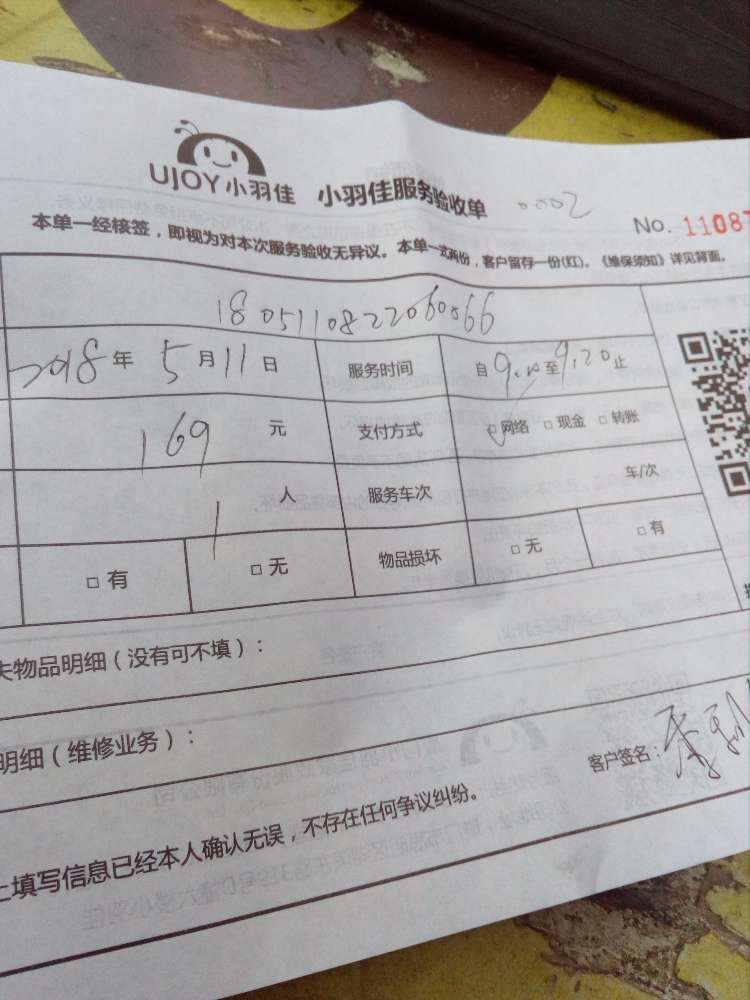 UJOY小羽佳 小羽佳服务验收单 0002
No. 11087
本单一经核签，即视为对本次服务验收无异议。本单一式两份，客户留存一份(红)。《维保须知》详见背面。
1805110822060066
2018年5月11日 服务时间 自9:10至9:20止
169元 支付方式 □网络 □现金 □转账
1人 服务车次 车/次
□有 □无 物品损坏 □无 □有
失物品明细（没有可不填）：
明细（维修业务）：
客户签名：李
上填写信息已经本人确认无误，不存在任何争议纠纷。